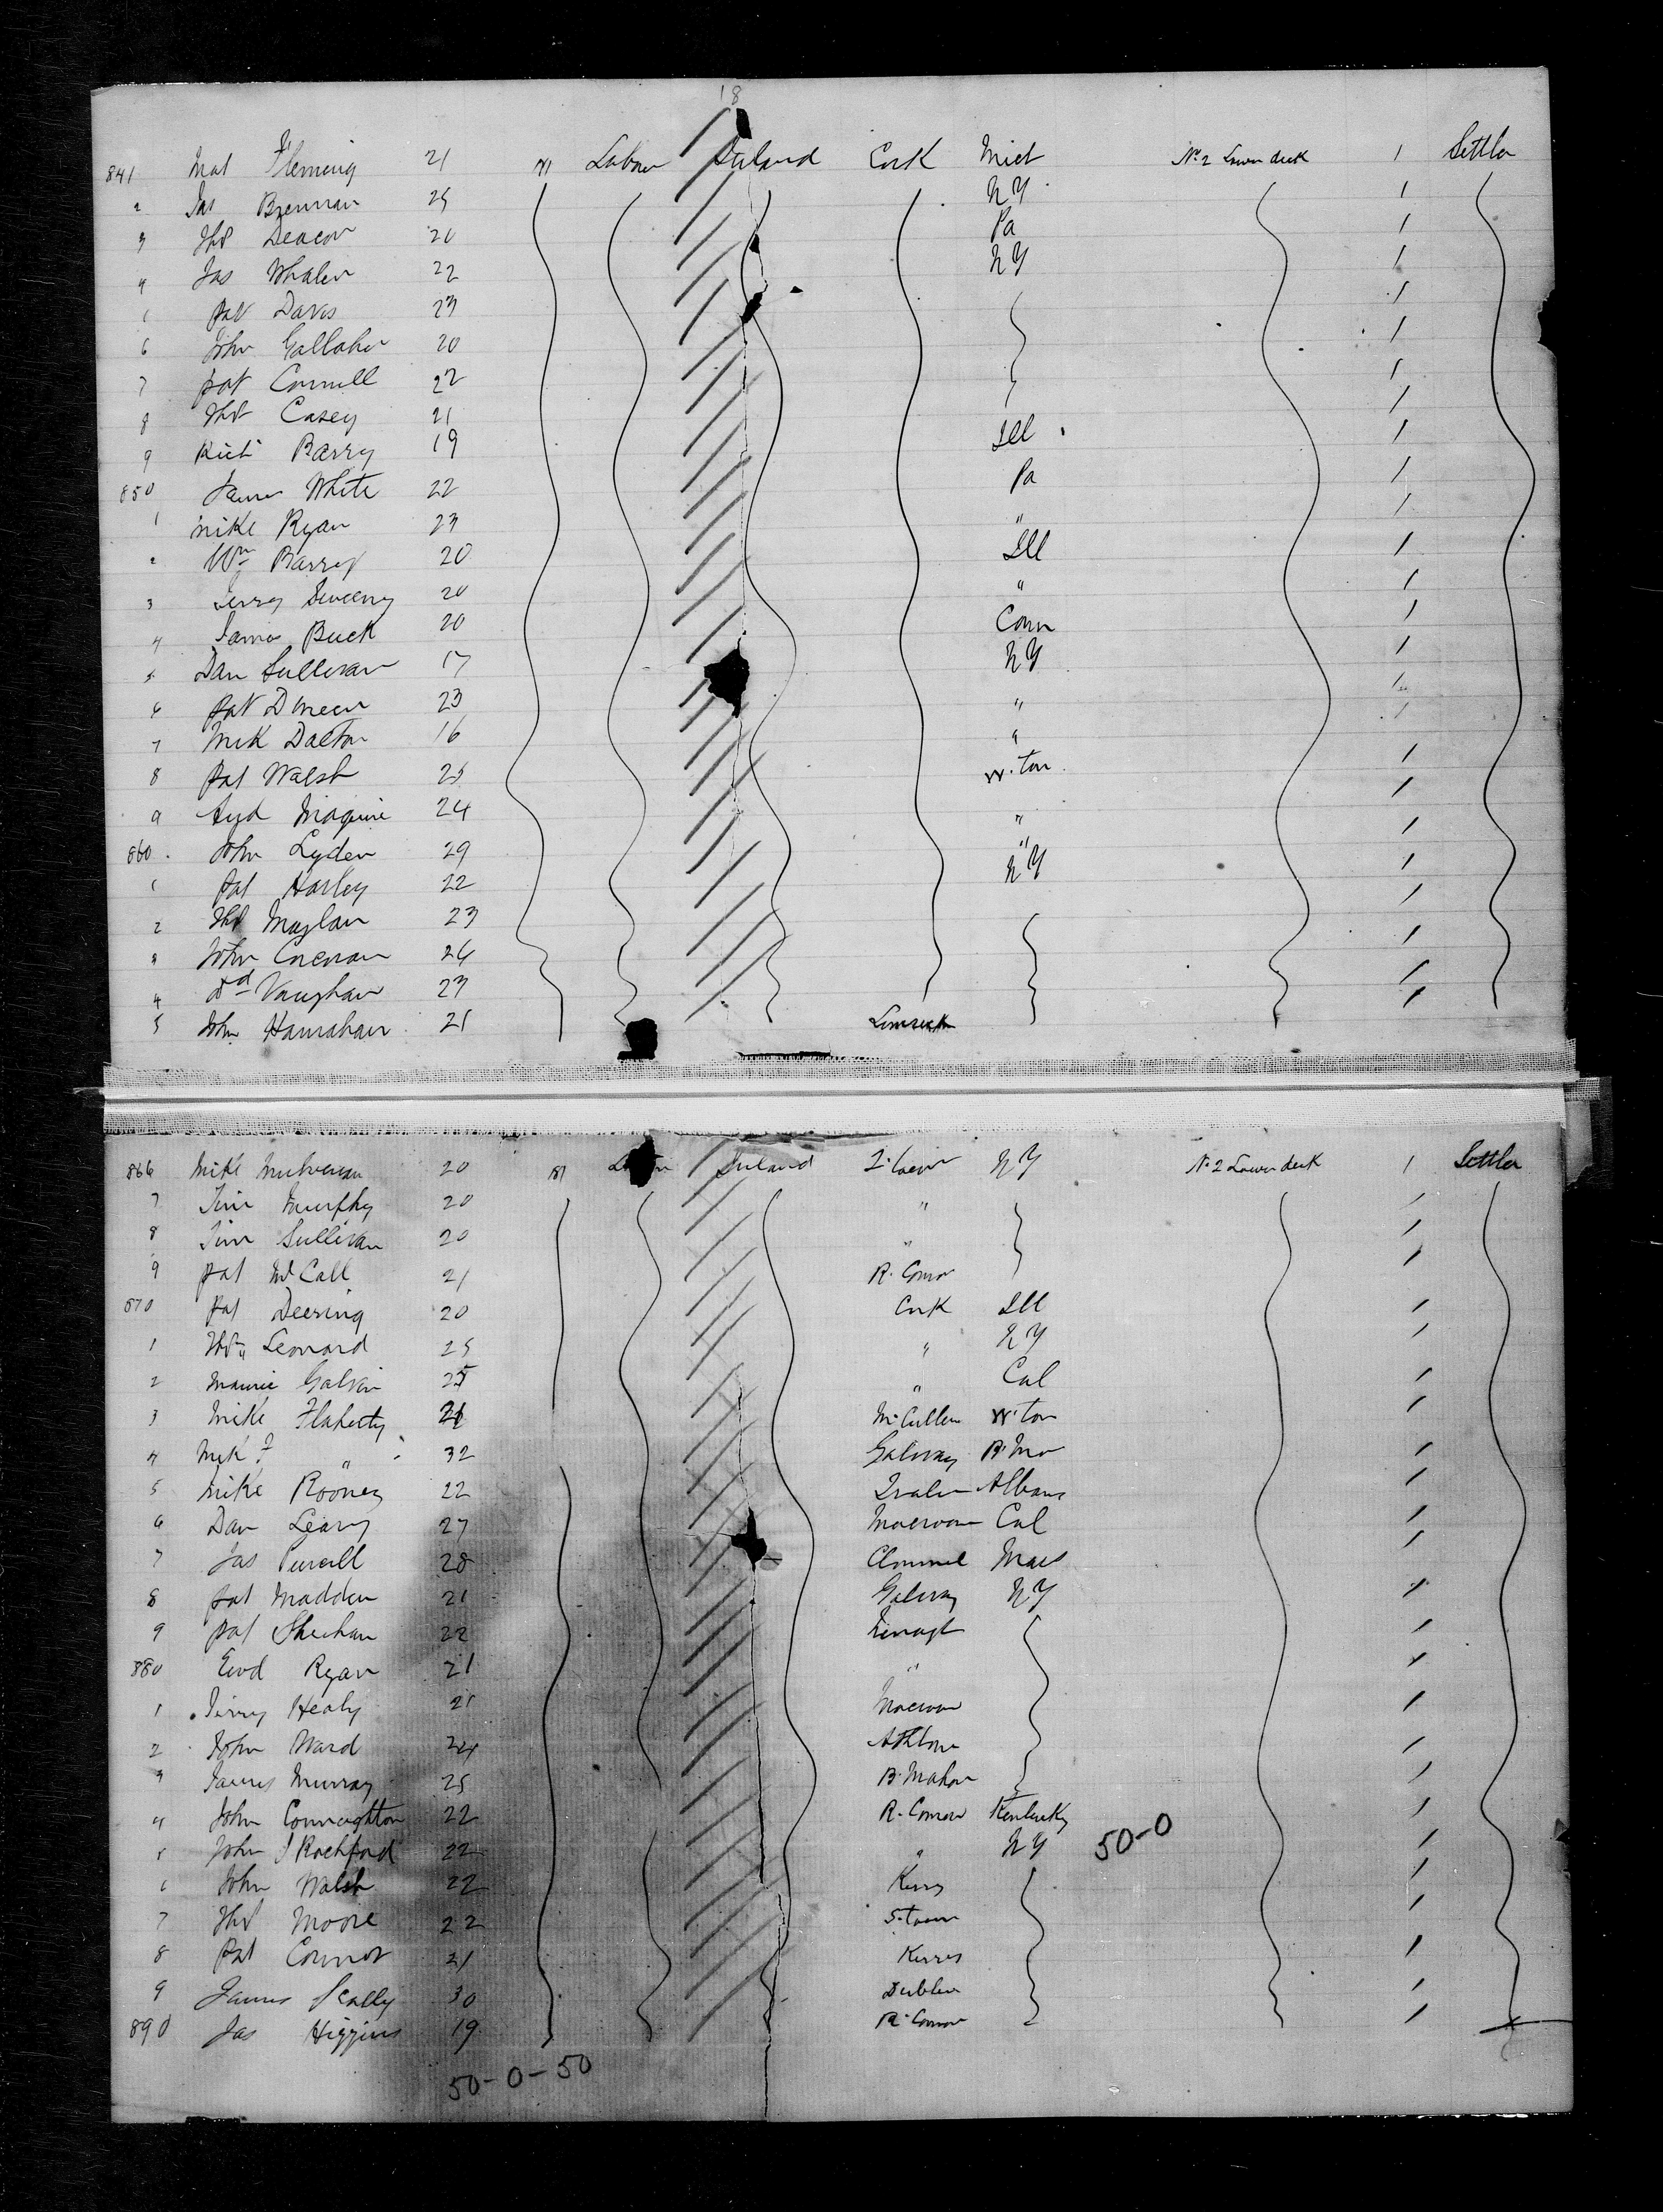 18
841 Mat Fleming 21 M Labor Ireland Cork Mich No 2 Lower deck 1 Settler
2 Jas Brennan 25 NY 1
3 Thos Deacon 20 Pa 1
4 Jas Whalen 22 NY 1
Pat Davis 23 1
6 John Gallaher 20 1
7 Pat Connell 22 1
8 Thos Casey 21 1
9 Rich Barry 19 Ill 1
850 James White 22 Pa 1
1 Mike Ryan 23 " 1
2 Wm Barry 20 Ill 1
3 Jerry Sweeny 20 " 1
4 James Buck 20 Conn 1
5 Dan Sullivan 17 NY 1
6 Pat Dineen 23 " 1
7 Mck Dalton 16 " 1
8 Pat Walsh 25 W.ton 1
9 And Maguire 24 " 1
860 John Lyden 29 " 1
1 Pat Harley 22 NY 1
2 Thos Moylan 23 1
3 John Corcoran 26 1
4 Dd Vaughan 23 1
5 John Hanrahan 21 Limerick 1
866 Mike 20 M Labor Ireland NY No 2 Lower deck 1 Settler
7 Tim Murphy 20 " 1
8 Tim Sullivan 20 " 1
9 Pat McCall 21 R.Comon 1
870 Pat Deering 20 Cork Ill 1
1 Leonard 25 " NY 1
2 Maurice Galvin 25 " Cal 1
3 Mike Flaherty M.Cullen W.ton 1
4 Mck " 32 Galway 1
5 Mike Rooney 22 Tralee Albany 1
6 Dan Leary 27 Macroom Cal 1
7 Jas Purcell 28 Clonmel Mass 1
8 Pat Madden 21 Galway NY 1
9 Pat Sheehan 22 Nenagh 1
880 Ewd Ryan 21 " 1
1 Jerry Healy 21 Macroom 1
2 John Ward 24 Athlone 1
3 James Murray 25 B.Mahon 1
4 John Connaughton 22 R.Comon Kentucky 1
5 John J Rochford 22 " NY 50-0 1
6 John Walsh 22 Kerry 1
7 Thos Moore 22 1
8 Pat Connor 21 Kerry 1
9 James Scally 30 Dublin 1
890 Jas Higgins 19 R.Comon 1
50-0-50